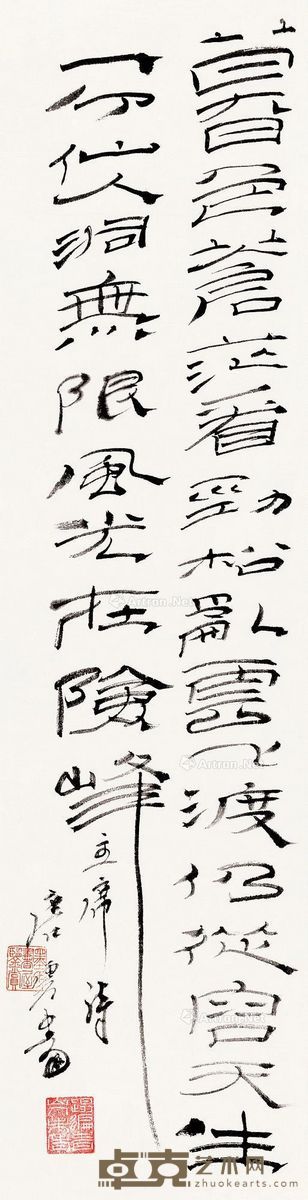 暮色蒼茫看勁松亂雲飛渡仍從容天生
一个仙人洞無限風光在險峰
主席詩
書
Artron.Net
Artron.Net
Artron.Net
卓克艺术网
www.zhuokearts.com